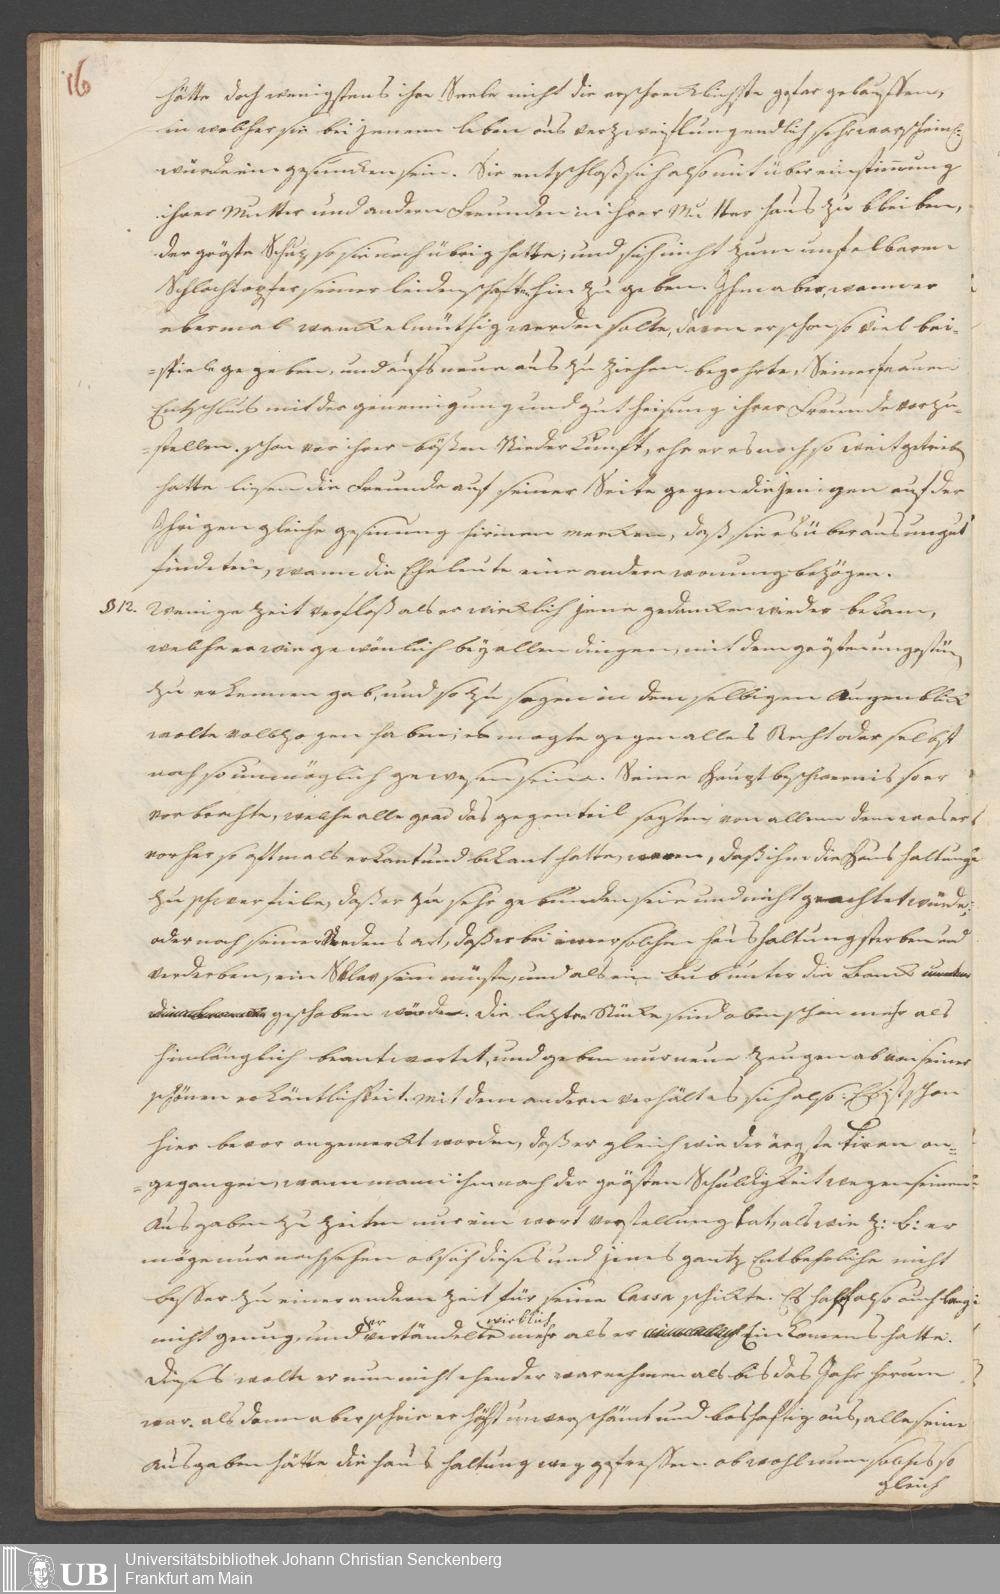 16
hätte doch wenigstens ihre Seele nicht die erschrecklichste gefar gelauffen,
in welcher sie bei jenem leben aus verzweiflung endlich sehr warscheinl:
würde eingesuncken sein. Sie entschloß sich also mit übereinstimmung
ihrer Mutter und andern Freunden in ihrer Mutter haus zu bleiben,
der gröste Schuz so sie noch übrig hatte, und sich nicht zum unfelbaren
Schlachtopfer seiner leidenschaften hin zu geben. Ihm aber, wann er
abermal wanckelmüthig werden solte, davon er schon so viel bei-
=spiele gegeben, und aufs neue aus zu ziehen begehrte, Seiner frauen
Entschlus mit der genemigung und gutheisung ihrer Freunde vorzu-
=stellen. schon vor ihrer bößen Niederkunfft, ehe er es noch so weit getrieben
hatte liesen die Freunde auf seiner Seite gegen diejenigen auf der
Ihrigen gleiche gesinnung hirinnen mercken, daß sie es überaus ungut
findeten, wann die Eheleute eine andere wonung bezögen.
§ 12. Wenige Zeit verfloß als er wircklich jene gedancken wieder bekam,
welche er wie gewönlich bey allen dingen, mit dem grösten ungestüm
zu erkennen gab, und so zu sagen in demselbigen Augenblick
wolte volbzogen haben; es mogte gegen alles Recht oder selbst
noch so unmöglich gewesen seine. Seine Hauptbeschwernis so er
vorbrachte, welche alle grad das gegenteil sagten von allem dem was er
vorher so oftmals erkant und bekant hatte, waren, daß ihm die Haushaltung
zu schwer fiele, daß er zu sehr gebunden seie und nicht geachtet würde;
oder nach seiner Redensart, daß er bei einer solchen haushaltung sterben und
verderben, ein Sklav sein müste, und als ein bub unter die Banck
geschoben würde. Die letztre Stücke sind oben schon mehr als
hinlänglich beantwortet, und geben nur neue Zeugen ab von seiner
schönen erkäntlichkeit. Mit dem andern verhält es sich also: Es ist schon
hier bevor angemerckt worden, daß er gleich wie der ärgste Tiran an-
=gegangen, wann man ihm nach der grösten Schuldigkeit wegen seinen
Ausgaben zu Zeiten nur ein wort vorstellung tat, als wie z: b: er
möge nur nachsehen ob sich dieses und jenes gantz Entbehrliche nicht
besser zu einer andern Zeit für seine Cassa schickte. Es half also auch
nicht genung, und er vertändelte wirklich mehr als er Einkomens hatte.
Dieses wolte er nun nicht ehender warnehmen als bis das Jahr herum
war. als dann aber schrie er höchst unverschämt und boshaftig aus, alle seine
Ausgaben hätte die haushaltung weggefressen obwohl nun solches so
gleich
Universitätsbibliothek Johann Christian Senckenberg
Frankfurt am Main
UB